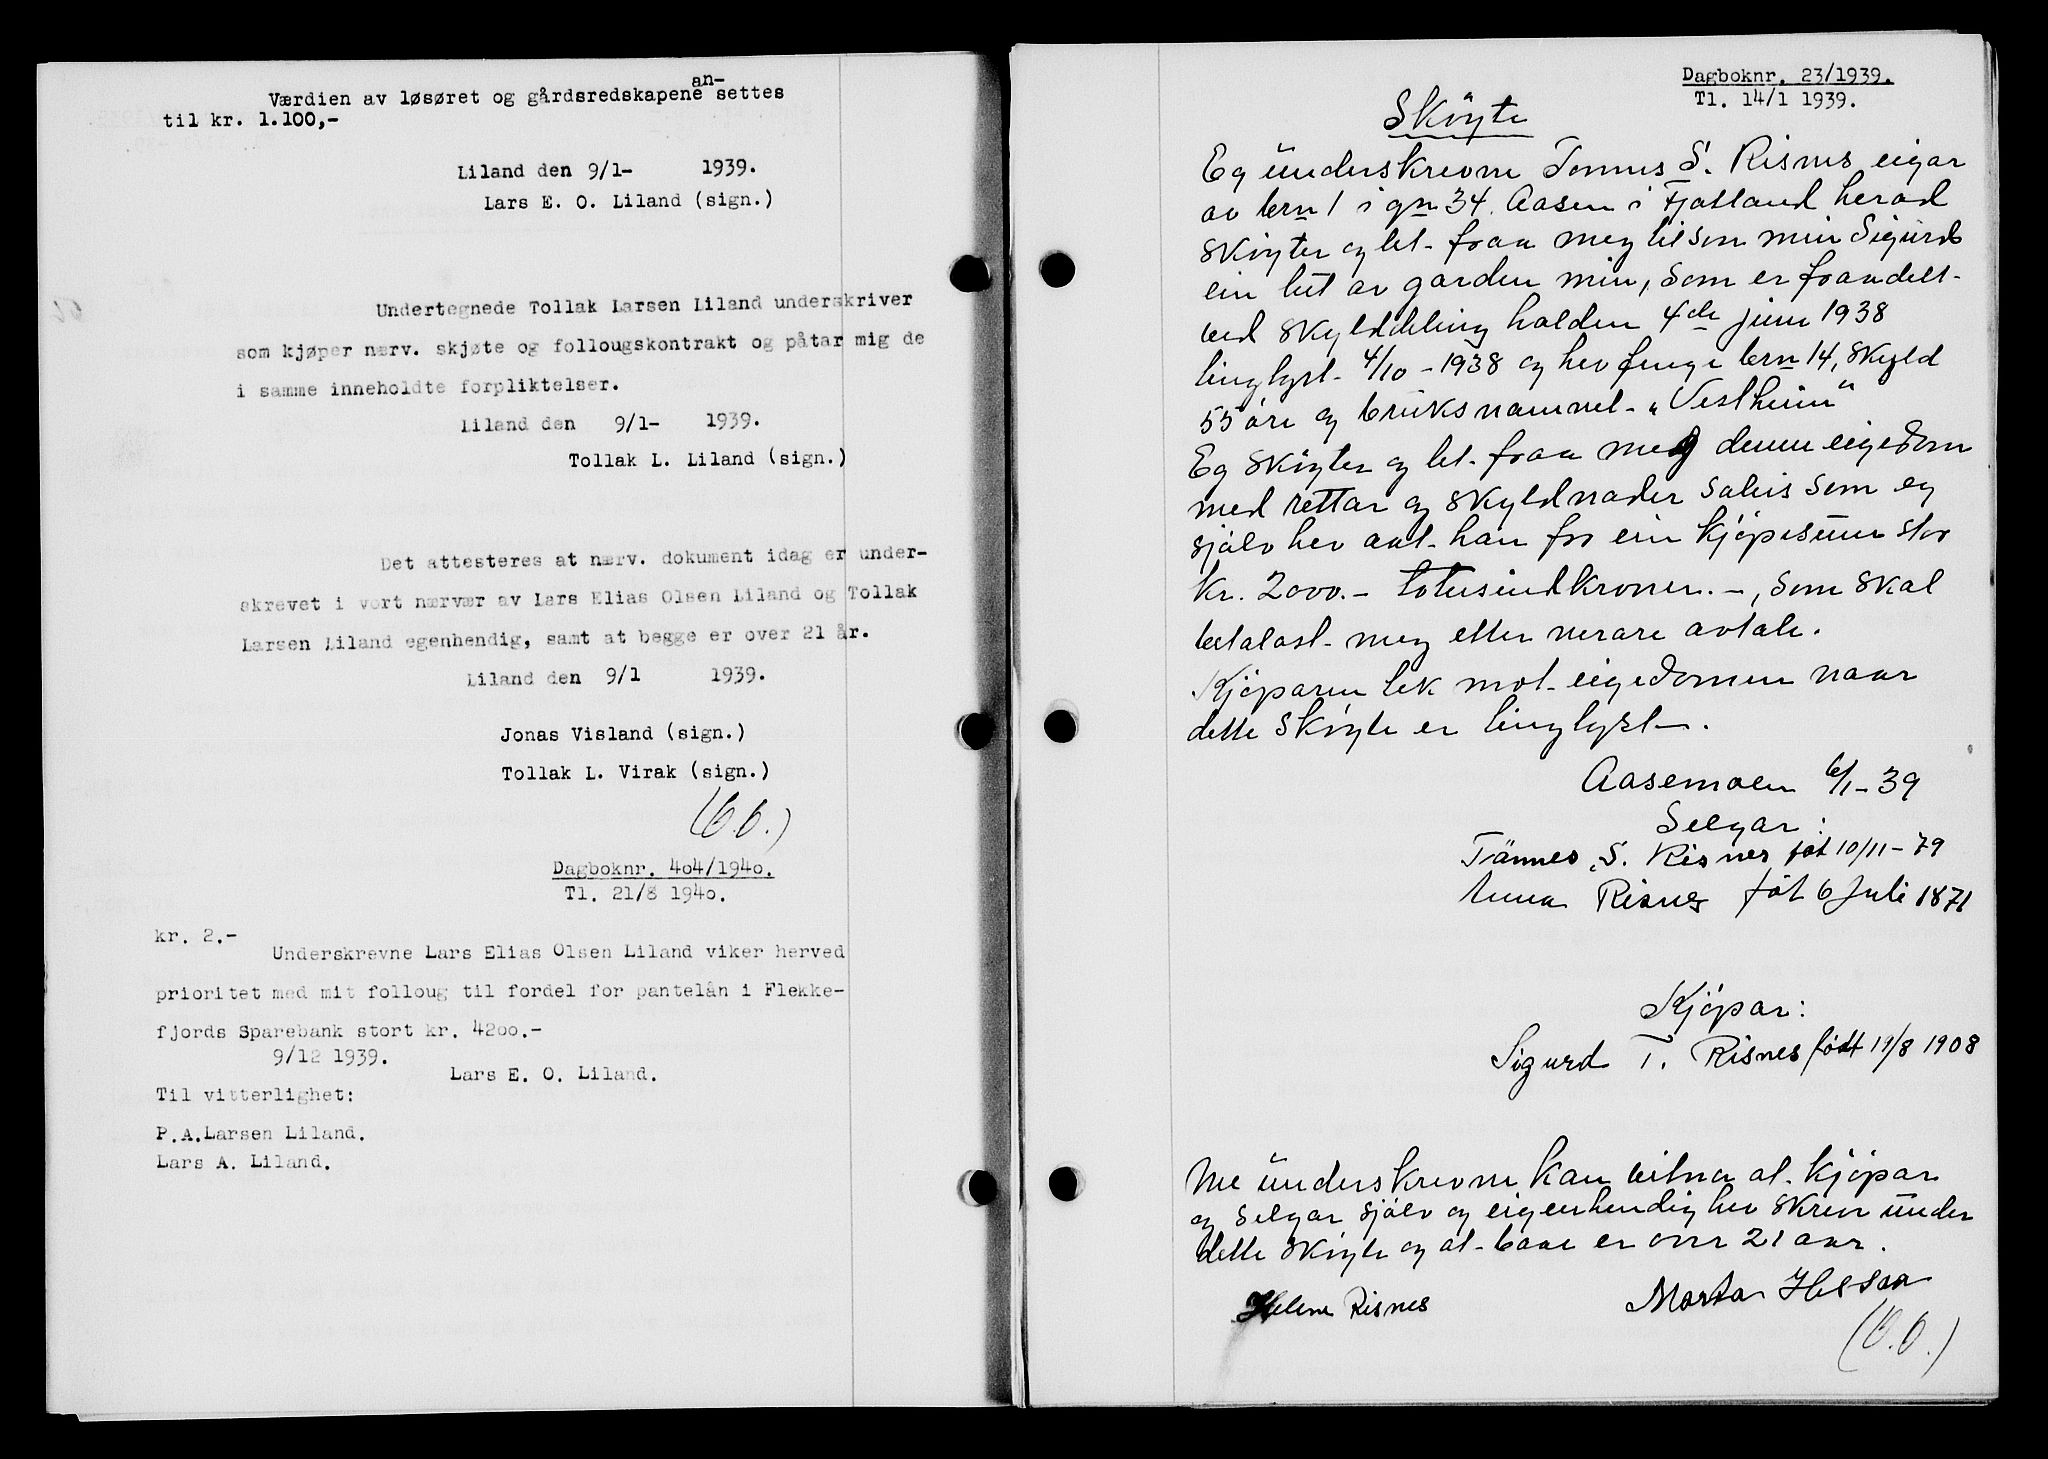 Værdien av løsøret og gårdsredskapene an-settes
til kr. 1.100,-
Liland den 9/1- 1939.
Lars E. O. Liland (sign.)
Undertegnede Tollak Larsen Liland underskriver
som kjøper nærv. skjøte og follougskontrakt og påtar mig de
i samme inneholdte forpliktelser.
Liland den 9/1- 1939.
Tollak L. Liland (sign.)
Det attesteres at nærv. dokument idag er under-
skrevet i vort nærvær av Lars Elias Olsen Liland og Tollak
Larsen Liland egenhendig, samt at begge er over 21 år.
Liland den 9/1 1939.
Jonas Visland (sign.)
Tollak L. Virak (sign.)
Dagboknr. 404/1940.
Tl. 21/8 1940.
kr. 2.-
Underskrevne Lars Elias Olsen Liland viker herved
prioritet med mit folloug til fordel for pantelån i Flekke-
fjords Sparebank stort kr. 4200.-
9/12 1939.
Lars E. O. Liland.
Til vitterlighet:
P.A.Larsen Liland.
Lars A. Liland.
Dagboknr. 23/1939.
Tl. 14/1 1939.
Sköyte
Eg underskrevne Tønnes S. Risnes eigar
av brn 1 i gn 34. Aasen i Fjotland herad
sköyter og let fraa meg til son min Sigurd
ein lut av garden min, som er fraadelt
ved skylddeling halden 4de juni 1938
tinglyst 4/10 - 1938 og hev fenge brn 14, skyld
55 öre og bruksnamnet "Vestheim"
Eg sköyter og let fraa meg denne eigedom
med rettar og skyldnader soleis som eg
sjölv hev aat han for ein kjöpesum stor
kr. 2000.- totusindkroner. -, som skal
betalast meg etter nerare avtale.
Kjöparen tek mot eigedomen naar
dette sköyte er tinglyst.
Aasemoen 6/1-39
Selgar:
Tönnes S. Risnes föt 10/11-79
Anna Risnes föt 6 Juli 1871
Kjöpar:
Sigurd T. Risnes født 19/8 1908
Me underskrevne kan vitna at kjöpar
og selgar sjölv og eigenhendig hev skreve under
dette sköyte og at baae er over 21 aar.
Helene Risnes